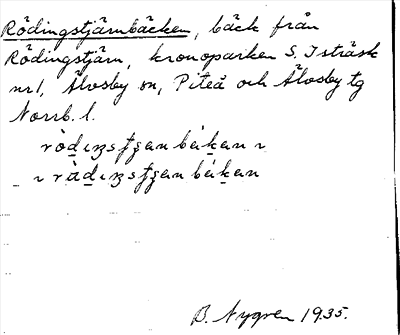 Rödingstjärnbäcken, bäck från
Rödingstjärn, kronoparken S. Isträsk
nr 1, Älvsby sn, Piteå och Älvsby tg
Norrb. l.
B. Nygren 1935.